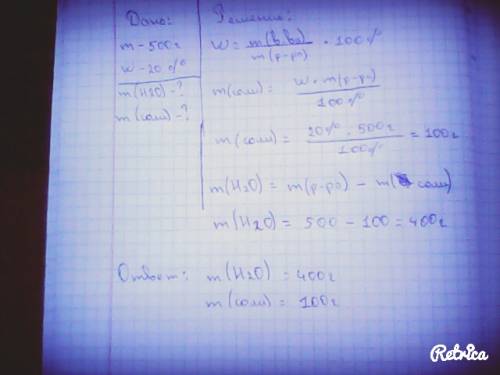 Дано:
m - 500г
w - 20 %
m(H2O) - ?
m(соли) - ?
Решение:
w = m(в.ва) / m(р-ра) • 100 %
m(соли) = w • m(р-ра) / 100 %
m(соли) = 20% • 500г / 100% = 100г
m(H2O) = m(р-ра) - m(соли)
m(H2O) = 500 - 100 = 400г
Ответ: m(H2O) = 400г
m(соли) = 100г
Retrica